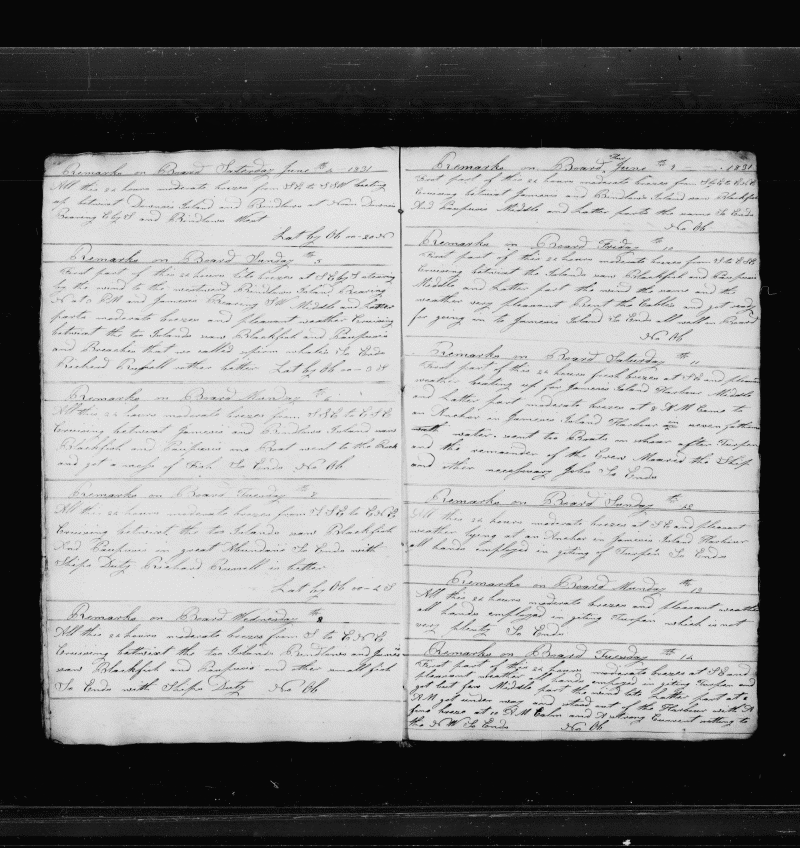 Remarks on Board Saturday June th 4 1831
All this 24 hours moderate breezes from S E to S S W beating
up betwixt Island and Bindlows at Noon
Bearing E by S and Bindlows that
Lat by Ob 00-20 N
Remarks on Board Sunday th 5
First part of this 24 hours lite breezes at S E by S
by the wind to the westward Bindlows Island Bearing
N at 2 P M and Jameses Bearing S W Middle and latter
parts moderate breezes and pleasant weather Cruising
betwixt the too Islands saw Blackfish and Porpuses
and Breaches that we called sperm whales So Ends
Richard Russell rather better Lat by Ob 00-3 N
Remarks on Board Monday th 6
All this 24 hours moderate breezes from S S E to E S E
Cruising betwixt Jameses and Bindlows Island saw
Blackfish and Porpuses one Boat went to the Rock
and got a mess of Fish So Ends No Ob
Remarks on Board Tuesday th 7
All this 24 hours moderate breezes from S S E to E N E
Cruising betwixt the too Islands saw Blackfish
And Porpuses in great Abundans So Ends with
Ships Duty Richard Russell is better
Lat by Ob 00-2 S
Remarks on Board Wednesday th 8
All this 24 hours moderate breezes from S to E N E
Cruising betwixt the too Islands Bindlows and James
saw Blackfish and Porpuses and other small fish
So Ends with Ships Duty No Ob
Remarks on Board Thurs June th 9 1831
First part of this 24 hours moderate breezes from
Cruising betwixt Jameses and Bindlows Island saw Blackfish
And Porpuses Middle and Latter parts the same So Ends
No Ob
Remarks on Board Friday th 10
First part of this 24 hours moderate breezes from S to E S E
Cruising betwixt the Islands saw Blackfish and Porpuses
Middle and Latter part the wind the same and the
weather very pleasant Bent the Cables and got ready
for going in to Jameses Island So Ends all well on Board
No Ob
Remarks on Board Saturday th 11
First part of this 24 hours fresh breezes at S E and pleasant
weather beating up for Jameses Island Harbour Middle
and Latter part moderate breezes at 8 A M Came to
an Anchor in Jameses Island Harbour in seven fathom
water went too Boats on shoar after Turpen
and the remainder of the Crew Moored the Ship
and other necessary Jobs So Ends
Remarks on Board Sunday th 12
All this 24 hours moderate breezes at S E and pleasant
weather lying at an Anchor in Jameses Island Harbour
all hands employed in geting of Turpen So Ends
Remarks on Board Monday th 13
All this 24 hours moderate breezes and pleasant weather
all hands employed in geting Turpen which is not
very plenty So Ends
Remarks on Board Tuesday th 14
First part of this 24 hours moderate breezes at S E and
pleasant weather all hands employed in geting Turpen and
got but few Middle part the wind lite Latter part at
A M got under way and stood out of the Harbour with A
fine breeze at 10 A M Calm and A strong Current setting to
the N W So Ends No Ob